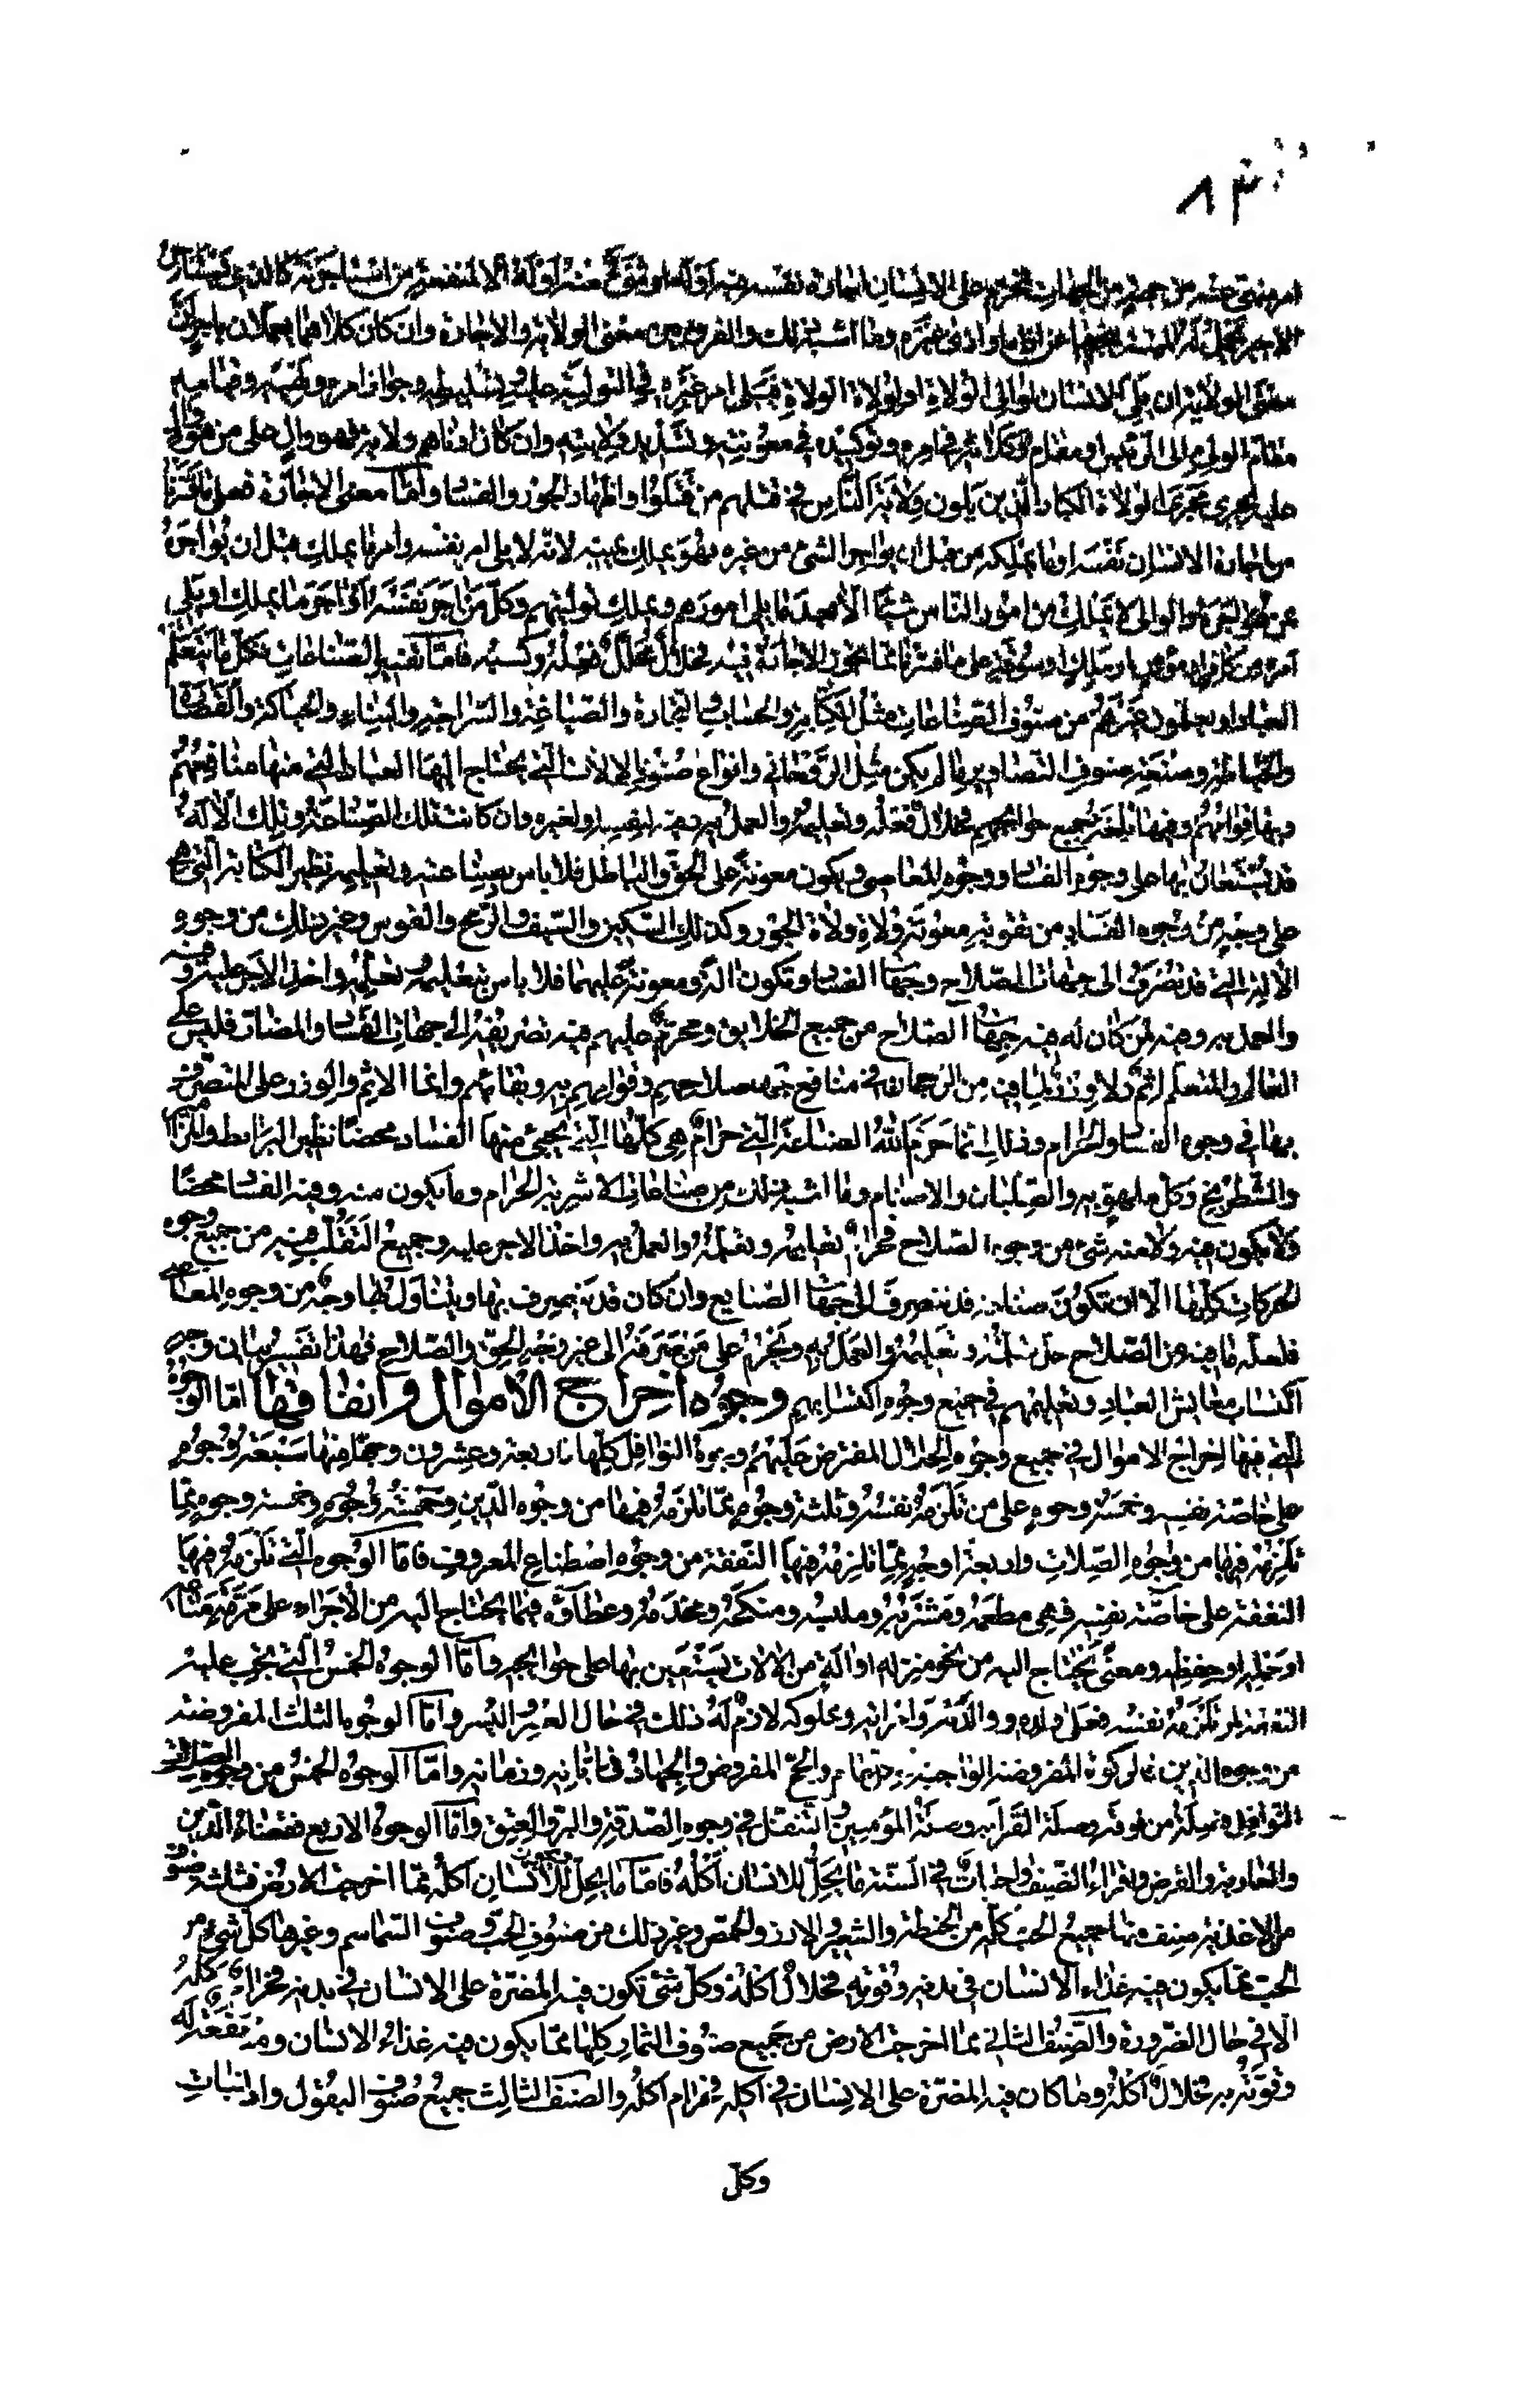 ٨٣
امر منهي عنه من جهة من الجهات محرم على الانسان اجارة نفسه فيه او له او شيء منه او له الا لمنفعة من استاجرته كالذي يستاجر
الاجير يحمل له الميتة ينحيها عن اذاه او اذى غيره وما اشبه ذلك والفرق بين معنى الولاية والاجارة وان كان كلاهما يعملان باجر ان
معنى الولاية ان يلي الانسان لوالي الولاة او لولاة الولاة فيلي امر غيره في التولية عليه وتسليطه وجواز امره ونهيه وقيامه
مقام الولي الى الرئيس او مقام وكلائه في امره وتوكيده في معونته وتسديد ولايته وان كان ادناهم ولاية فهو وال على من هو وال
عليه يجري مجرى الولاة الكبار الذين يلون ولاية الناس في قتلهم من قتلوا واظهار الجور والفساد واما معنى الاجارة فعلى ما فسرنا
من اجارة الانسان نفسه او ما يملكه من قبل ان يواجر الشيء من غيره فهو يملك يمينه لانه لا يلي امر نفسه وامر ما يملك قبل ان يواجره
ممن هو اجره والوالي لا يملك من امور الناس شيئا الا بعد ما يلي امورهم ويملك توليتهم وكل من اجر نفسه او اجر ما يملك او يلي
امره من كافر او مؤمن او ملك او سوقة على ما فسرنا مما تجوز الاجارة فيه فحلال محلل فعله وكسبه فاما تفسير الصناعات فكل ما يتعلم
العباد او يعلمون غيرهم من صنوف الصناعات مثل الكتابة والحساب والتجارة والصياغة والسراجة والبناء والحياكة والقصارة
والخياطة وصنعة صنوف التصاوير ما لم يكن مثل الروحاني وانواع صنوف الالات التي يحتاج اليها العباد التي منها منافعهم
وبها قوامهم وفيها بلغة جميع حوائجهم فحلال فعله وتعليمه والعمل به وفيه لنفسه او لغيره وان كانت تلك الصناعة وتلك الالة
قد يستعان بها على وجوه الفساد ووجوه المعاصي ويكون معونة على الحق والباطل فلا باس بصناعته وتعليمه نظير الكتابة التي هي
على وجه من وجوه الفساد من تقويته معونة ولاة ولاة الجور وكذلك السكين والسيف والرمح والقوس وغير ذلك من وجوه
الالة التي قد تصرف الى جهات الصلاح وجهات الفساد وتكون الة ومعونة عليهما فلا باس بتعليمه وتعلمه واخذ الاجر عليه وفيه
والعمل به وفيه لمن كان له فيه جهات الصلاح من جميع الخلايق ومحرم عليهم فيه تصريفه الى جهات الفساد والمضار فليس على
العالم والمتعلم اثم ولا وزر لما فيه من الرجحان في منافع جهات صلاحهم وقوامهم به وبقائهم وانما الاثم والوزر على المتصرف
بها في وجوه الفساد والحرام وذلك انما حرم الله الصناعة التي حرام هي كلها التي يجيئ منها الفساد محضا نظير البرابط والمزامير
والشطرنج وكل ملهو به والصلبان والاصنام وما اشبه ذلك من صناعات الاشربة الحرام وما يكون منه وفيه الفساد محضا
ولا يكون فيه ولا منه شيئ من وجوه الصلاح فحرام تعليمه وتعلمه والعمل به واخذ الاجر عليه وجميع التقلب فيه من جميع وجوه
الحركات كلها الا ان تكون صناعة قد تنصرف الى جهات الصنايع وان كان قد يتصرف بها ويتناول بها وجه من وجوه المعاصي
فلعله ما فيه من الصلاح حل تعلمه وتعليمه والعمل به ويحرم على من صرفه الى غير وجه الحق والصلاح فهذا تفسير بيان وجه
اكتساب معايش العباد وتعليمهم في جميع وجوه اكتسابهم وجوه اخراج الاموال وانفاقها اما الوجوه
التي فيها اخراج الاموال في جميع وجوه الحلال المفترض عليهم ووجوه النوافل كلها فاربعة وعشرون وجها منها سبعة وجوه
على خاصة نفسه وخمسة وجوه على من تلزمه نفسه وثلثة وجوه مما تلزمه فيها من وجوه الدين وخمسة وجوه وخمسة وجوه مما
تلزمه فيها من وجوه الصلات واربعة اوجه مما تلزمه فيها النفقة من وجوه اصطناع المعروف فاما الوجوه التي تلزمه فيها
النفقة على خاصة نفسه فهي مطعمه ومشربه وملبسه ومنكحه ومخدمه وعطاؤه فيما يحتاج اليه من الاجراء على مرمة متاع
او حمله او حفظه ومعنى يحتاج اليه من نحو منزله او الة من الالات يستعين بها على حوائجه واما الوجوه الخمس التي تجب عليه
النفقة لمن تلزمه نفسه فعلى ولده ووالديه وامراته ومملوكه لازم له ذلك في حال العسر واليسر واما الوجوه الثلث المفروضة
من وجوه الدين فالزكوة المفروضة الواجبة في كل عام والحج المفروض والجهاد في ابانه وزمانه واما الوجوه الخمس من وجوه الصلات
النوافل فصلة من فوقه وصلة القرابة وصلة المؤمنين والتنفل في وجوه الصدقة والبر والعتق واما الوجوه الاربع فقضاء الدين
والعارية والقرض واقراء الضيف واجبات في السنة ما يحل للانسان اكله فاما ما يحل للانسان اكله مما اخرجت الارض فثلثة صنوف
من الاغذية صنف منها جميع الحب كله من الحنطة والشعير والارز والحمص وغير ذلك من صنوف الحب وصنوف السماسم وغيرها كل شيء من
الحب مما يكون فيه غذاء الانسان في بدنه وقوته فحلال اكله وكل شئ تكون فيه المضرة على الانسان في بدنه فحرام اكله
الا في حال الضرورة والصنف الثاني مما اخرجت الارض من جميع صنوف الثمار كلها مما يكون فيه غذاء الانسان ومنفعة له
وقوته به فحلال اكله وما كان فيه المضرة على الانسان في اكله فحرام اكله والصنف الثالث جميع صنوف البقول والنبات
وكل